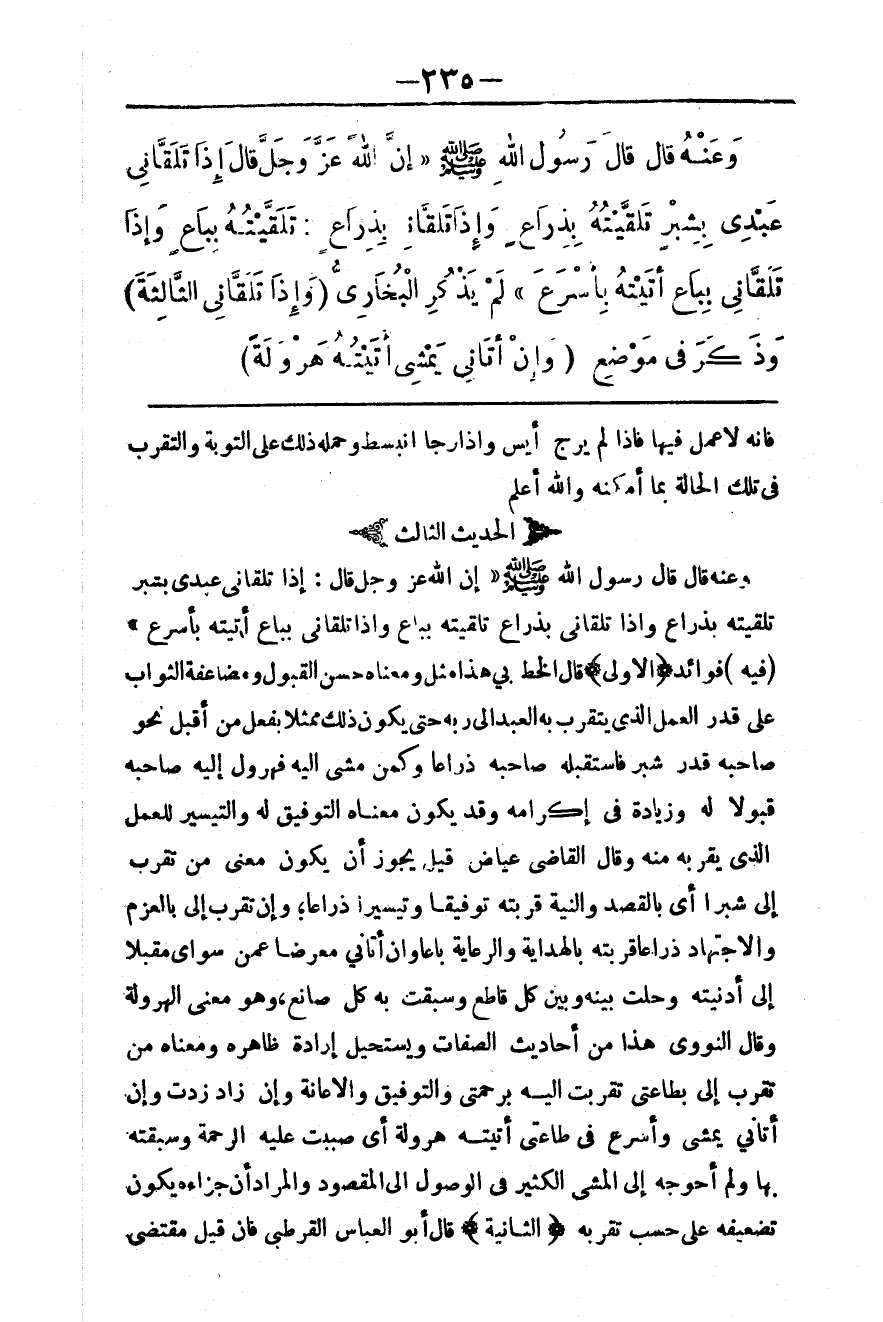 —٢٣٥—
وَعَنْهُ قال قالَ رَسُول اللهِ ﷺ « إنَّ اللهَ عَزَّ وَجَلَّ قالَ إِذَا تَلَقَّانِى
عَبْدِى بِشِبْرٍ تَلَقَّيْتُهُ بِذِرَاعٍ وَإِذَا تَلقَّانِى بِذِرَاعٍ : تَلَقَّيْتُهُ بِبَاعٍ وَإِذَا
تَلَقَّانِى بِبَاعٍ أَتَيْتهُ بِأَسْرَعَ » لَمْ يَذْكُرِ الْبُخَارِىُّ (وَإِذَا تَلَقَّانِى الثَّالِثَةَ)
وَذَكَرَ فى مَوْضعٍ ( وَإِنْ أَتَانِى يَمْشِى أَتَيْتُهُ هَرْوَلَةً)
فانه لاعمل فيها فاذا لم يرج أيس واذارجا انبسط وحمله ذلك على التوبة والتقرب
فى تلك الحالة بما أمكنه والله أعلم
﴿ الحديث الثالث ﴾
وعنه قال قال رسول الله ﷺ « إن الله عز وجل قال : إذا تلقانى عبدى بشبر
تلقيته بذراع واذا تلقانى بذراع تلقيته بباع واذا تلقانى بباع أتيته بأسرع »
(فيه) فوائد ﴿الاولى﴾ قال الخطابي هذا مثل ومعناه حسن القبول ومضاعفة الثواب
على قدر العمل الذى يتقرب به العبد الى ربه حتى يكون ذلك ممثلا بفعل من أقبل نحو
صاحبه قدر شبر فاستقبله صاحبه ذراعا وكمن مشى اليه فهرول إليه صاحبه
قبولا له وزيادة فى إكرامه وقد يكون معناه التوفيق له والتيسير للعمل
الذى يقربه منه وقال القاضى عياض قيل يجوز أن يكون معنى من تقرب
إلى شبرا أى بالقصد والنية قربته توفيقا وتيسيرا ذراعا، وإن تقرب إلى بالعزم
والاجتهاد ذراعا قربته بالهداية والرعاية باعا وان أتاني معرضا عمن سواى مقبلا
إلى أدنيته وحلت بينه وبين كل قاطع وسبقت به كل صانع، وهو معنى الهرولة
وقال النووى هذا من أحاديث الصفات ويستحيل إرادة ظاهره ومعناه من
تقرب إلى بطاعتى تقربت اليه برحمتى والتوفيق والاعانة وإن زاد زدت وإن
أتاني يمشى وأسرع فى طاعتى أتيته هرولة أى صببت عليه الرحمة وسبقته
بها ولم أحوجه إلى المشى الكثير فى الوصول الى المقصود والمراد أن جزاءه يكون
تضعيفه على حسب تقربه ﴿ الثانية ﴾ قال أبو العباس القرطبى فان قيل مقتضى